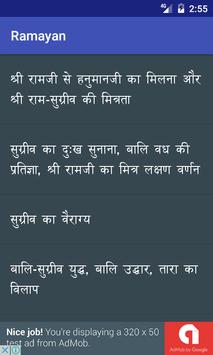 2:55
Ramayan
श्री रामजी से हनुमानजी का मिलना और
श्री राम-सुग्रीव की मित्रता
सुग्रीव का दुःख सुनाना, बालि वध की
प्रतिज्ञा, श्री रामजी का मित्र लक्षण वर्णन
सुग्रीव का वैराग्य
बालि-सुग्रीव युद्ध, बालि उद्धार, तारा का
विलाप
Nice job! You're displaying a 320 x 50
test ad from AdMob.
AdMob by Google